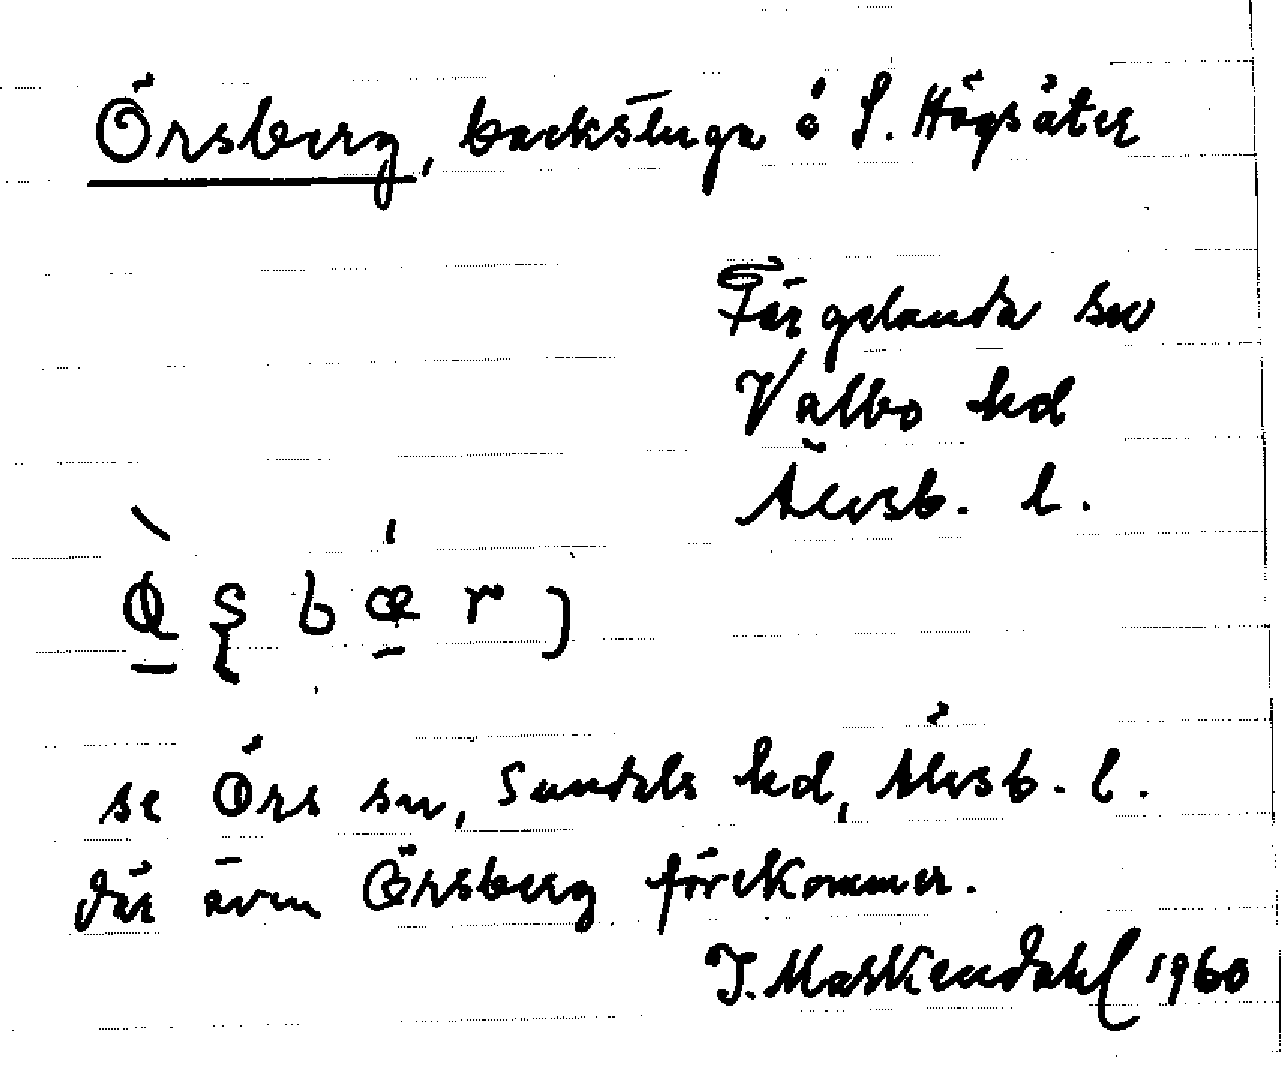 Örsberg, backstuga å S. Högsäter
Färgelanda sn
Valbo hd
Älvsb. l.
se Örs sn, Sundals hd, Älvsb. l.
där även Örsberg förekommer.
J. Maskendahl 1960